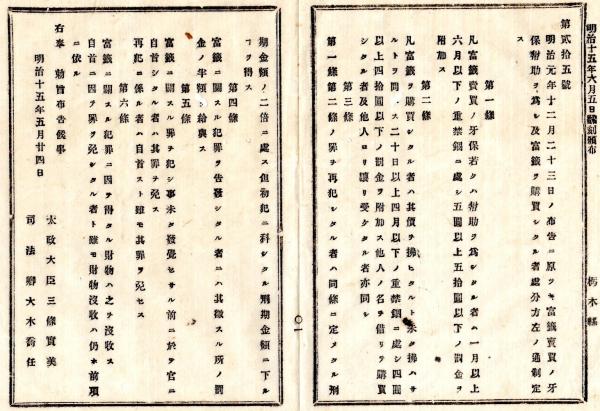 明治十五年六月五日飜刻頒布
栃木縣
第貳拾五號
明治元年十二月二十三日ノ布告ニ原ツキ富籤賣買ノ牙
保幇助ヲ爲シ及富籤ヲ購買シタル者處分方左ノ通制定
ス
第一條
凡富籤賣買ノ牙保若クハ幇助ヲ爲シタル者ハ一月以上
六月以下ノ重禁錮ニ處シ五圓以上五拾圓以下ノ罰金ヲ
附加ス
第二條
凡富籤ヲ購買シタル者ハ其價ヲ拂ヒタルト未タ拂ハサ
ルトヲ問ハス二十日以上四月以下ノ重禁錮ニ處シ四圓
以上四拾圓以下ノ罰金ヲ附加ス他人ノ名ヲ借リテ購買
シタル者及他人ヨリ讓リ受シタル者亦同シ
第三條
第一條第二條ノ罪ヲ再犯シタル者ハ同條ニ定メタル刑
期金額ノ二倍ニ處ス但初犯ニ科シタル刑期金額ニ下ル
コヲ得ス
第四條
富籤ニ關スル犯罪ヲ告發シタル者ニハ其徵スル所ノ罰
金ノ半額ヲ給與ス
第五條
富籤ニ關スル罪ヲ犯シ事未タ發覺セサル前ニ於テ官ニ
自首シタル者ハ其罪ヲ免ス
再犯ニ係ル者ハ自首スト雖モ其罪ヲ免セス
第六條
富籤ニ關スル犯罪ニ因テ得タル財物ハ之ヲ沒收ス
自首ニ因テ罪ヲ免シタル者ト雖モ財物沒收ハ仍ホ前項
ニ依ル
右奉 勅旨布告候事
明治十五年五月廿四日
太政大臣三條實美
司法卿大木喬任
〇一